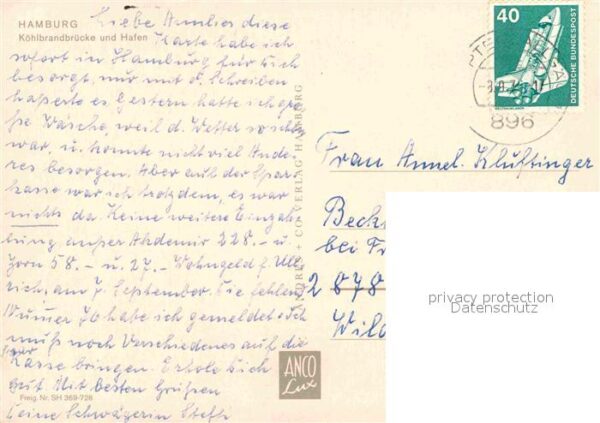 HAMBURG
Köhlbrandbrücke und Hafen
Liebe Annelies diese
Karte habe ich
sofort in Hamburg für Dich
besorgt, nur mit d. Schreiben
haperte es Gestern hatte ich gro-
ße Wäsche, weil d. Wetter so schön
war, u. konnte nicht viel Ande-
res besorgen. Aber auf der Spar-
kasse war ich trotzdem, es war
nichts da. Keine weitere Eingah-
lung außer Akademie 228.- u.
Zorn 58.- u. 27.- Wohngeld f. Ull-
rich, am 7. September. Die fehlen
Nummer 76 habe ich gemeldet. Ich
muß noch Verschiedenes auf die
Kasse bringen. Erhole Dich
gut Mit besten Grüßen
Deine Schwägerin Steffi
Freig. Nr. SH 369-728
ANDRES + CO VERLAG HAMBURG
ANCO
Lux
40
DEUTSCHE BUNDESPOST
896
Frau Annel. Kluftinger
Bech
bei Fr
2878
Wild
privacy protection
Datenschutz